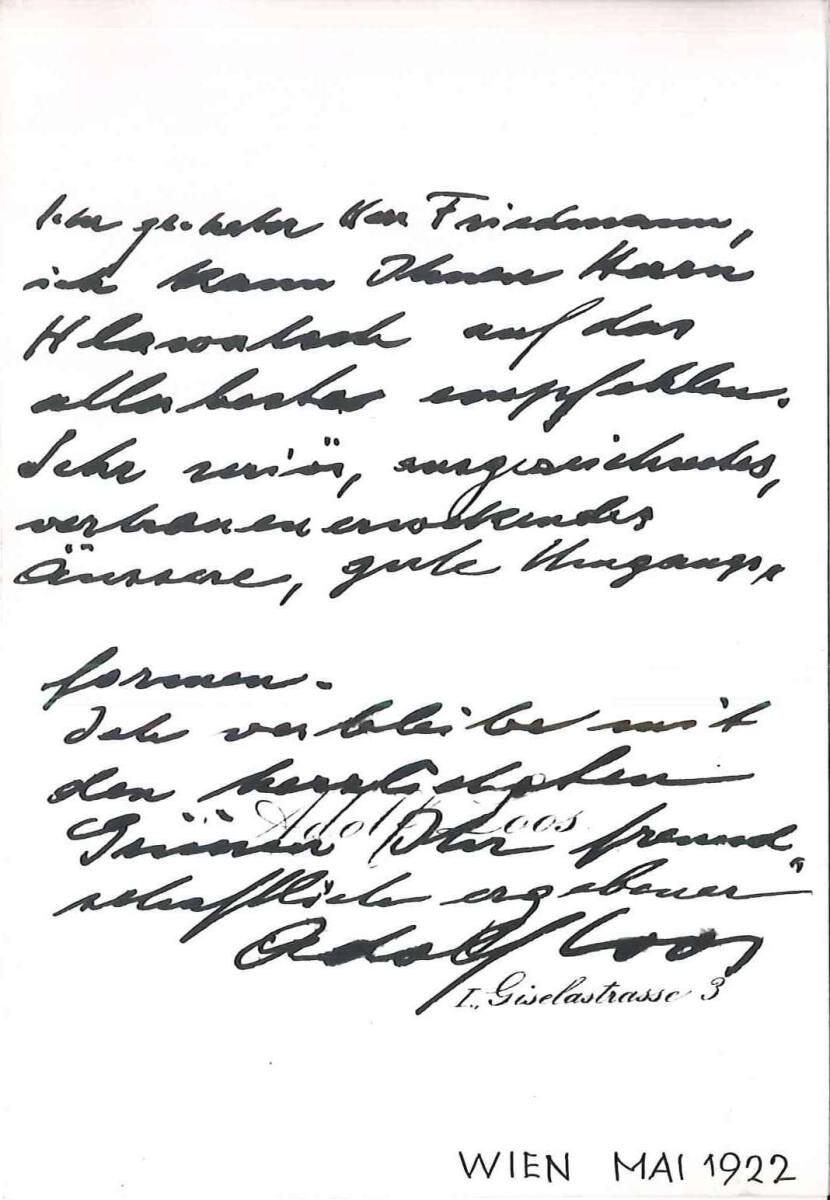 Sehr geehrter Herr Friedmann,
ich kann Ihnen Herrn
Hlawatsch auf das
allerbeste empfehlen.
Sehr seriös, ausgezeichnetes,
vertrauenerweckendes
Äussere, gute Umgangs„
formen.
Ich verbleibe mit
den herzlichsten
Adolf Loos
Grüssen Ihr freund„
schaftlich ergebener
Adolf Loos
I., Giselastrasse 3
WIEN MAI 1922